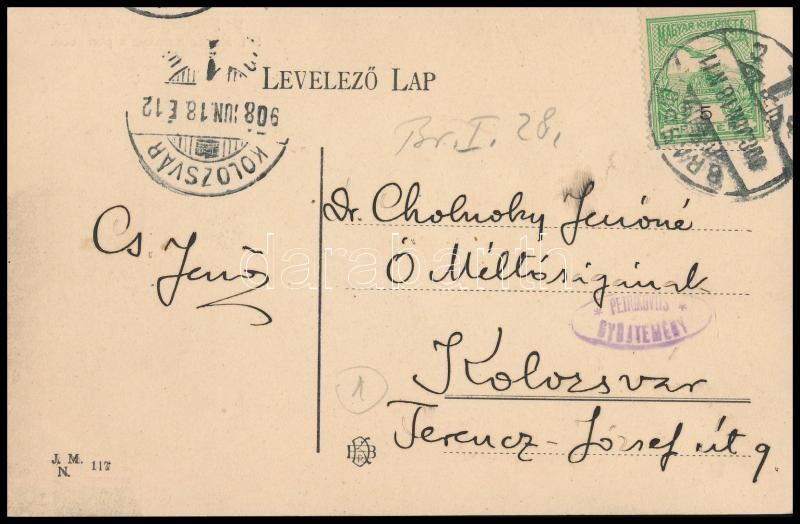 LEVELEZŐ LAP
908 JUN. 18 É. 12
KOLOZSVÁR
MAGYAR KIR. POSTA
Br. I. 28.
Dr. Cholnoky Jenőné
Ő Méltóságának
Cs Jenő
darabanth
* PETRIKOVITS *
GYŰJTEMÉNY
Kolozsvár
Ferencz-József út 9
1
J. M.
N. 117